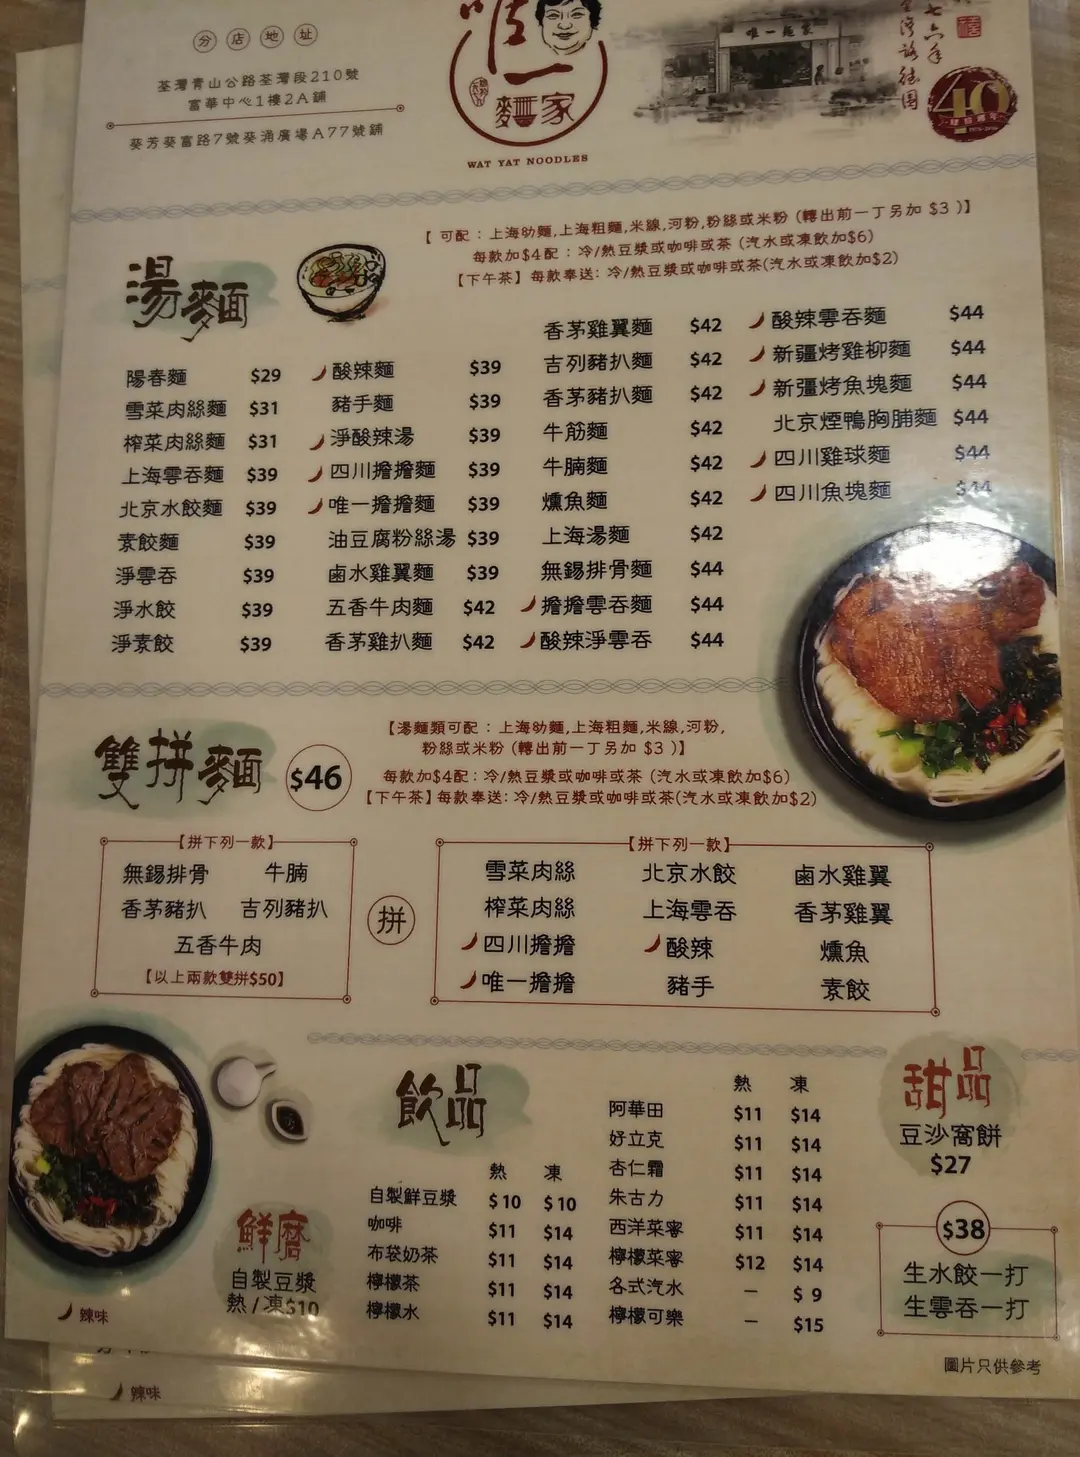 分店地址
荃灣青山公路荃灣段210號
富華中心1樓2A舖
葵芳葵富路7號葵涌廣場A77號舖
唯一麵家
WAT YAT NOODLES
唯一麵家
七六年
40
湯麵
【 可配 : 上海幼麵,上海粗麵,米線,河粉,粉絲或米粉 (轉出前一丁另加 $3 )】
每款加$4配 : 冷/熱豆漿或咖啡或茶 (汽水或凍飲加$6)
【下午茶】每款奉送: 冷/熱豆漿或咖啡或茶(汽水或凍飲加$2)
陽春麵 $29
雪菜肉絲麵 $31
榨菜肉絲麵 $31
上海雲吞麵 $39
北京水餃麵 $39
素餃麵 $39
淨雲吞 $39
淨水餃 $39
淨素餃 $39
酸辣麵 $39
豬手麵 $39
淨酸辣湯 $39
四川擔擔麵 $39
唯一擔擔麵 $39
油豆腐粉絲湯 $39
鹵水雞翼麵 $39
五香牛肉麵 $42
香茅雞扒麵 $42
香茅雞翼麵 $42
吉列豬扒麵 $42
香茅豬扒麵 $42
牛筋麵 $42
牛腩麵 $42
燻魚麵 $42
上海湯麵 $42
無錫排骨麵 $44
擔擔雲吞麵 $44
酸辣淨雲吞 $44
酸辣雲吞麵 $44
新疆烤雞柳麵 $44
新彊烤魚塊麵 $44
北京煙鴨胸脯麵 $44
四川雞球麵 $44
四川魚塊麵 $44
雙拼麵 $46
【湯麵類可配 : 上海幼麵,上海粗麵,米線,河粉,
粉絲或米粉 (轉出前一丁另加 $3 )】
每款加$4配 : 冷/熱豆漿或咖啡或茶 (汽水或凍飲加$6)
【下午茶】每款奉送: 冷/熱豆漿或咖啡或茶(汽水或凍飲加$2)
【拼下列一款】
無錫排骨 牛腩
香茅豬扒 吉列豬扒
五香牛肉
【以上兩款雙拼$50】
拼
【拼下列一款】
雪菜肉絲 北京水餃 鹵水雞翼
榨菜肉絲 上海雲吞 香茅雞翼
四川擔擔 酸辣 燻魚
唯一擔擔 豬手 素餃
鮮磨
自製豆漿
熱 / 凍$10
飲品
熱 凍
自製鮮豆漿 $10 $10
咖啡 $11 $14
布袋奶茶 $11 $14
檸檬茶 $11 $14
檸檬水 $11 $14
熱 凍
阿華田 $11 $14
好立克 $11 $14
杏仁霜 $11 $14
朱古力 $11 $14
西洋菜蜜 $11 $14
檸檬菜蜜 $12 $14
各式汽水 – $ 9
檸檬可樂 – $15
甜品
豆沙窩餅
$27
$38
生水餃一打
生雲吞一打
辣味
圖片只供參考
辣味